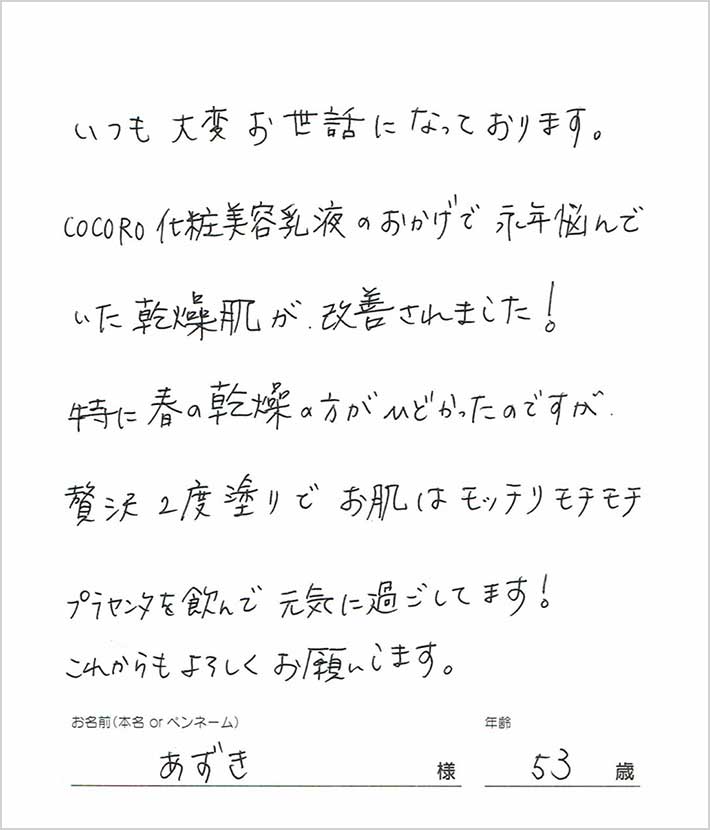 いつも 大変 お世話になっております。
COCORO 化粧美容乳液のおかげで 永年悩んで
いた 乾燥肌が、改善されました！
特に 春の乾燥の方がひどかったのですが、
贅沢 2度塗りで お肌は モッチリモチモチ
プラセンタを飲んで 元気に過ごしてます！
これからもよろしく お願いします。
お名前(本名 or ペンネーム) 年齢
あずき 様 53 歳